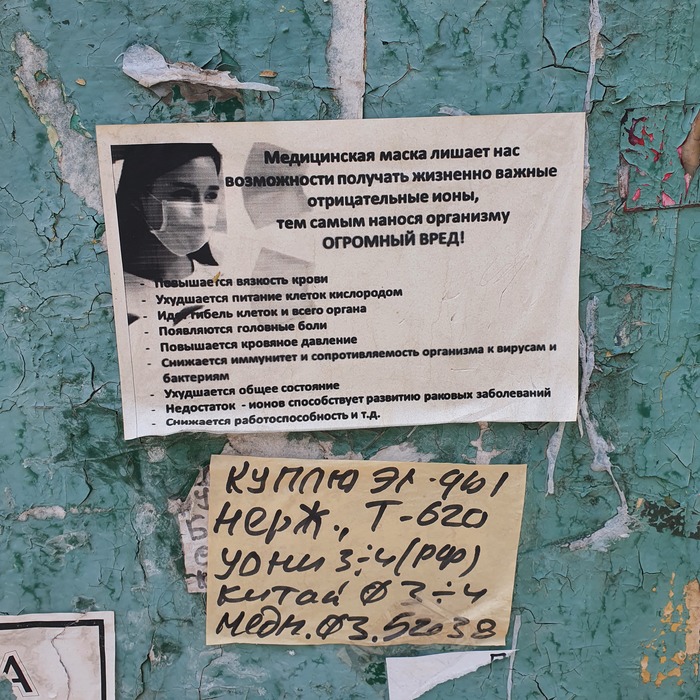 Медицинская маска лишает нас
возможности получать жизненно важные
отрицательные ионы,
тем самым нанося организму
ОГРОМНЫЙ ВРЕД!
- Повышается вязкость крови
- Ухудшается питание клеток кислородом
- Идет гибель клеток и всего органа
- Появляются головные боли
- Повышается кровяное давление
- Снижается иммунитет и сопротивляемость организма к вирусам и
бактериям
- Ухудшается общее состояние
- Недостаток - ионов способствует развитию раковых заболеваний
- Снижается работоспособность и т.д.
КУПЛЮ ЭЛ-ДЫ
НЕРЖ., Т-620
УОНИ 3÷4(РФ)
КИТАЙ Ø 3÷4
МЕДН. Ø3.
А